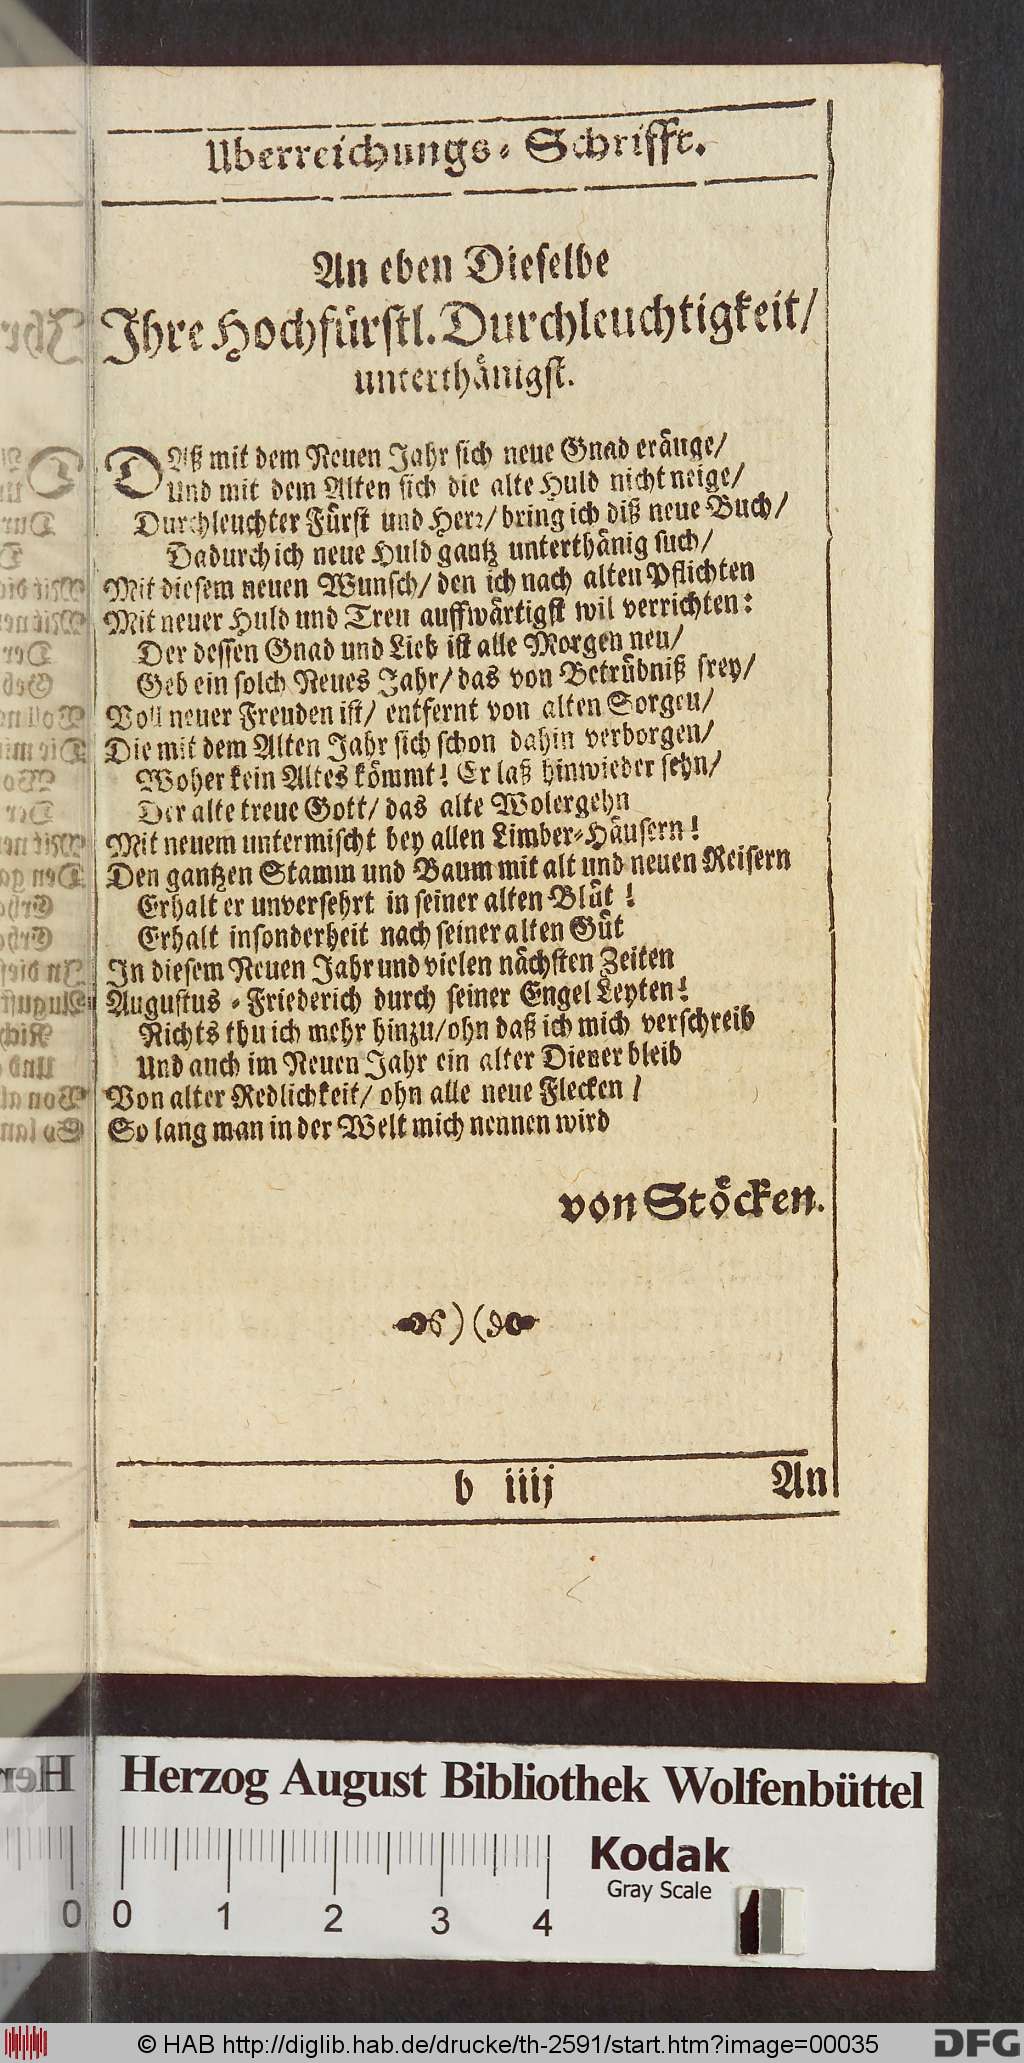 Uberreichungs-Schrifft.
An eben Dieselbe
Ihre Hochfürstl. Durchleuchtigkeit/
unterthänigst.
DAß mit dem Neuen Jahr sich neue Gnad eräuge/
Und mit dem Alten sich die alte Huld nicht neige/
Durchleuchter Fürst und Herr/ bring ich diß neue Buch/
Dadurch ich neue Huld gantz unterthänig such/
Mit diesem neuen Wunsch/ den ich nach alten Pflichten
Mit neuer Huld und Treu auffwärtigst wil verrichten:
Der dessen Gnad und Lieb ist alle Morgen neu/
Geb ein solch Neues Jahr/ das von Betrübniß frey/
Voll neuer Freuden ist/ entfernt von alten Sorgen/
Die mit dem Alten Jahr sich schon dahin verborgen/
Woher kein Altes kömmt! Er laß hinwieder sehn/
Der alte treue Gott/ das alte Wolergehn
Mit neuem untermischt bey allen Limber-Häusern!
Den gantzen Stamm und Baum mit alt und neuen Reisern
Erhalt er unversehrt in seiner alten Blüt!
Erhalt insonderheit nach seiner alten Güt
In diesem Neuen Jahr und vielen nächsten Zeiten
Augustus-Friederich durch seiner Engel Leyten!
Nichts thu ich mehr hinzu/ ohn daß ich mich verschreib
Und auch im Neuen Jahr ein alter Diener bleib
Von alter Redlichkeit/ ohn alle neue Flecken/
So lang man in der Welt mich nennen wird
von Stöcken.
b iiij
An
Herzog August Bibliothek Wolfenbüttel
Kodak
Gray Scale
0 0 1 2 3 4
© HAB http://diglib.hab.de/drucke/th-2591/start.htm?image=00035
DFG